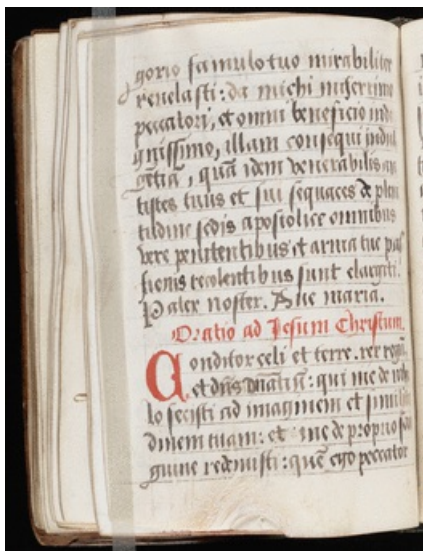 gorio famulo tuo mirabiliter
reuelasti: da michi miserrimo
peccatori, et omni beneficio indi
gnissimo, illam consequi indul
gētiā, quā idem venerabilis an
tistes tuus et sui sequaces de pleni
tudine sedis apostolice omnibus
vere penitentibus et arma tue pas
sionis recolentibus sunt elargiti.
Pater noster. Aue maria.
Oratio ad Jesum Christum.
Conditor celi et terre. rex regū
et dn̄s dn̄antiū: qui me de nihi
lo fecisti ad imaginem et simili
dinem tuam: et me de proprio sā
guine redemisti: quē ego peccator